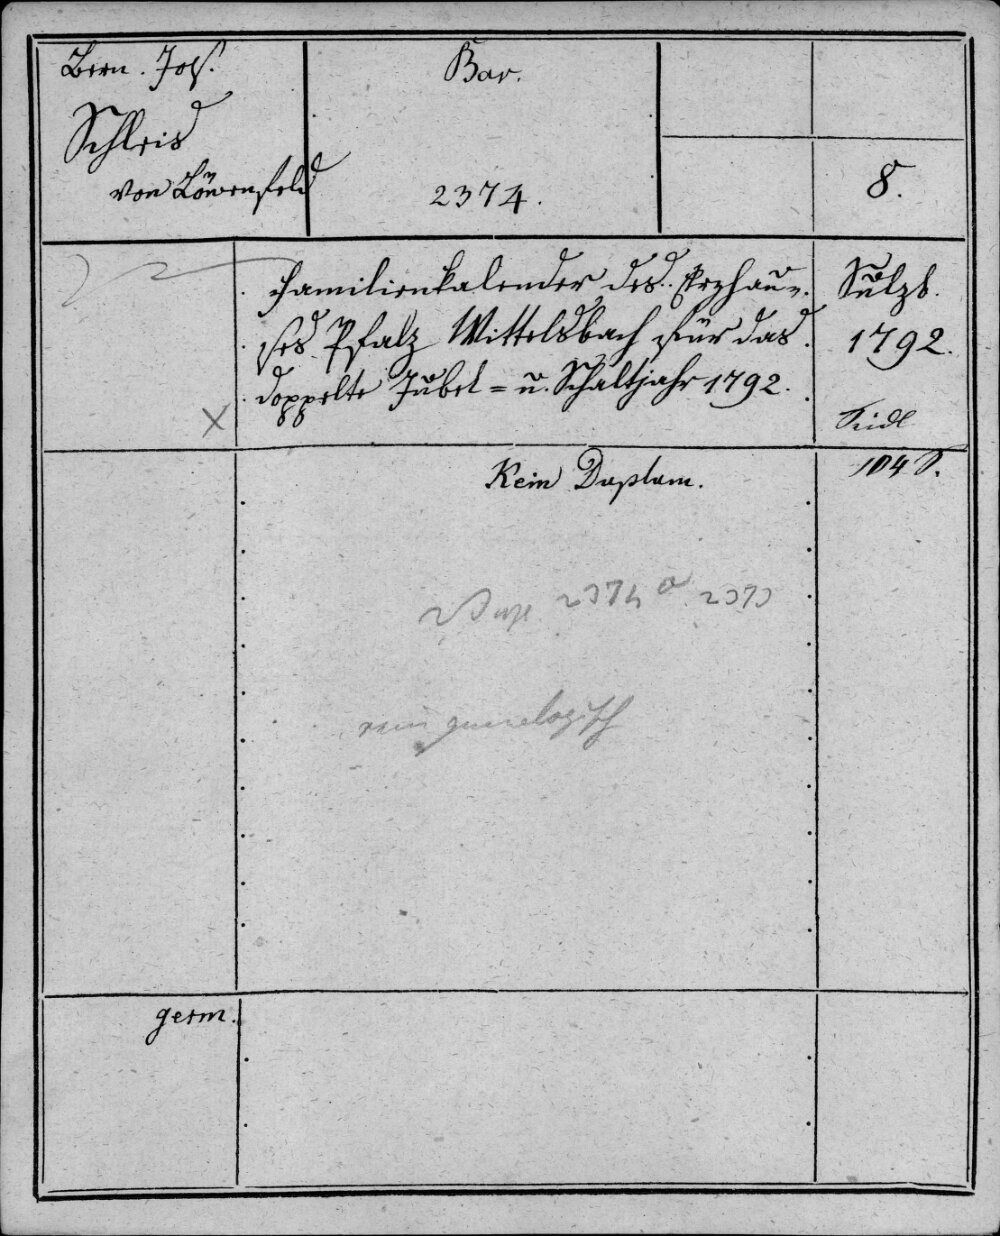 Bern. Jos.
Schleis
von Löwenfeld
Bav.
2374.
8.
Familienkalender des Erzhau-
ses Pfalz Wittelsbach für das
doppelte Jubel= u. Schaltjahr 1792.
Sulzb.
1792.
Seidl
104 S.
X
Kein Duplum.
2374 a 2373
rein genealogisch
germ.